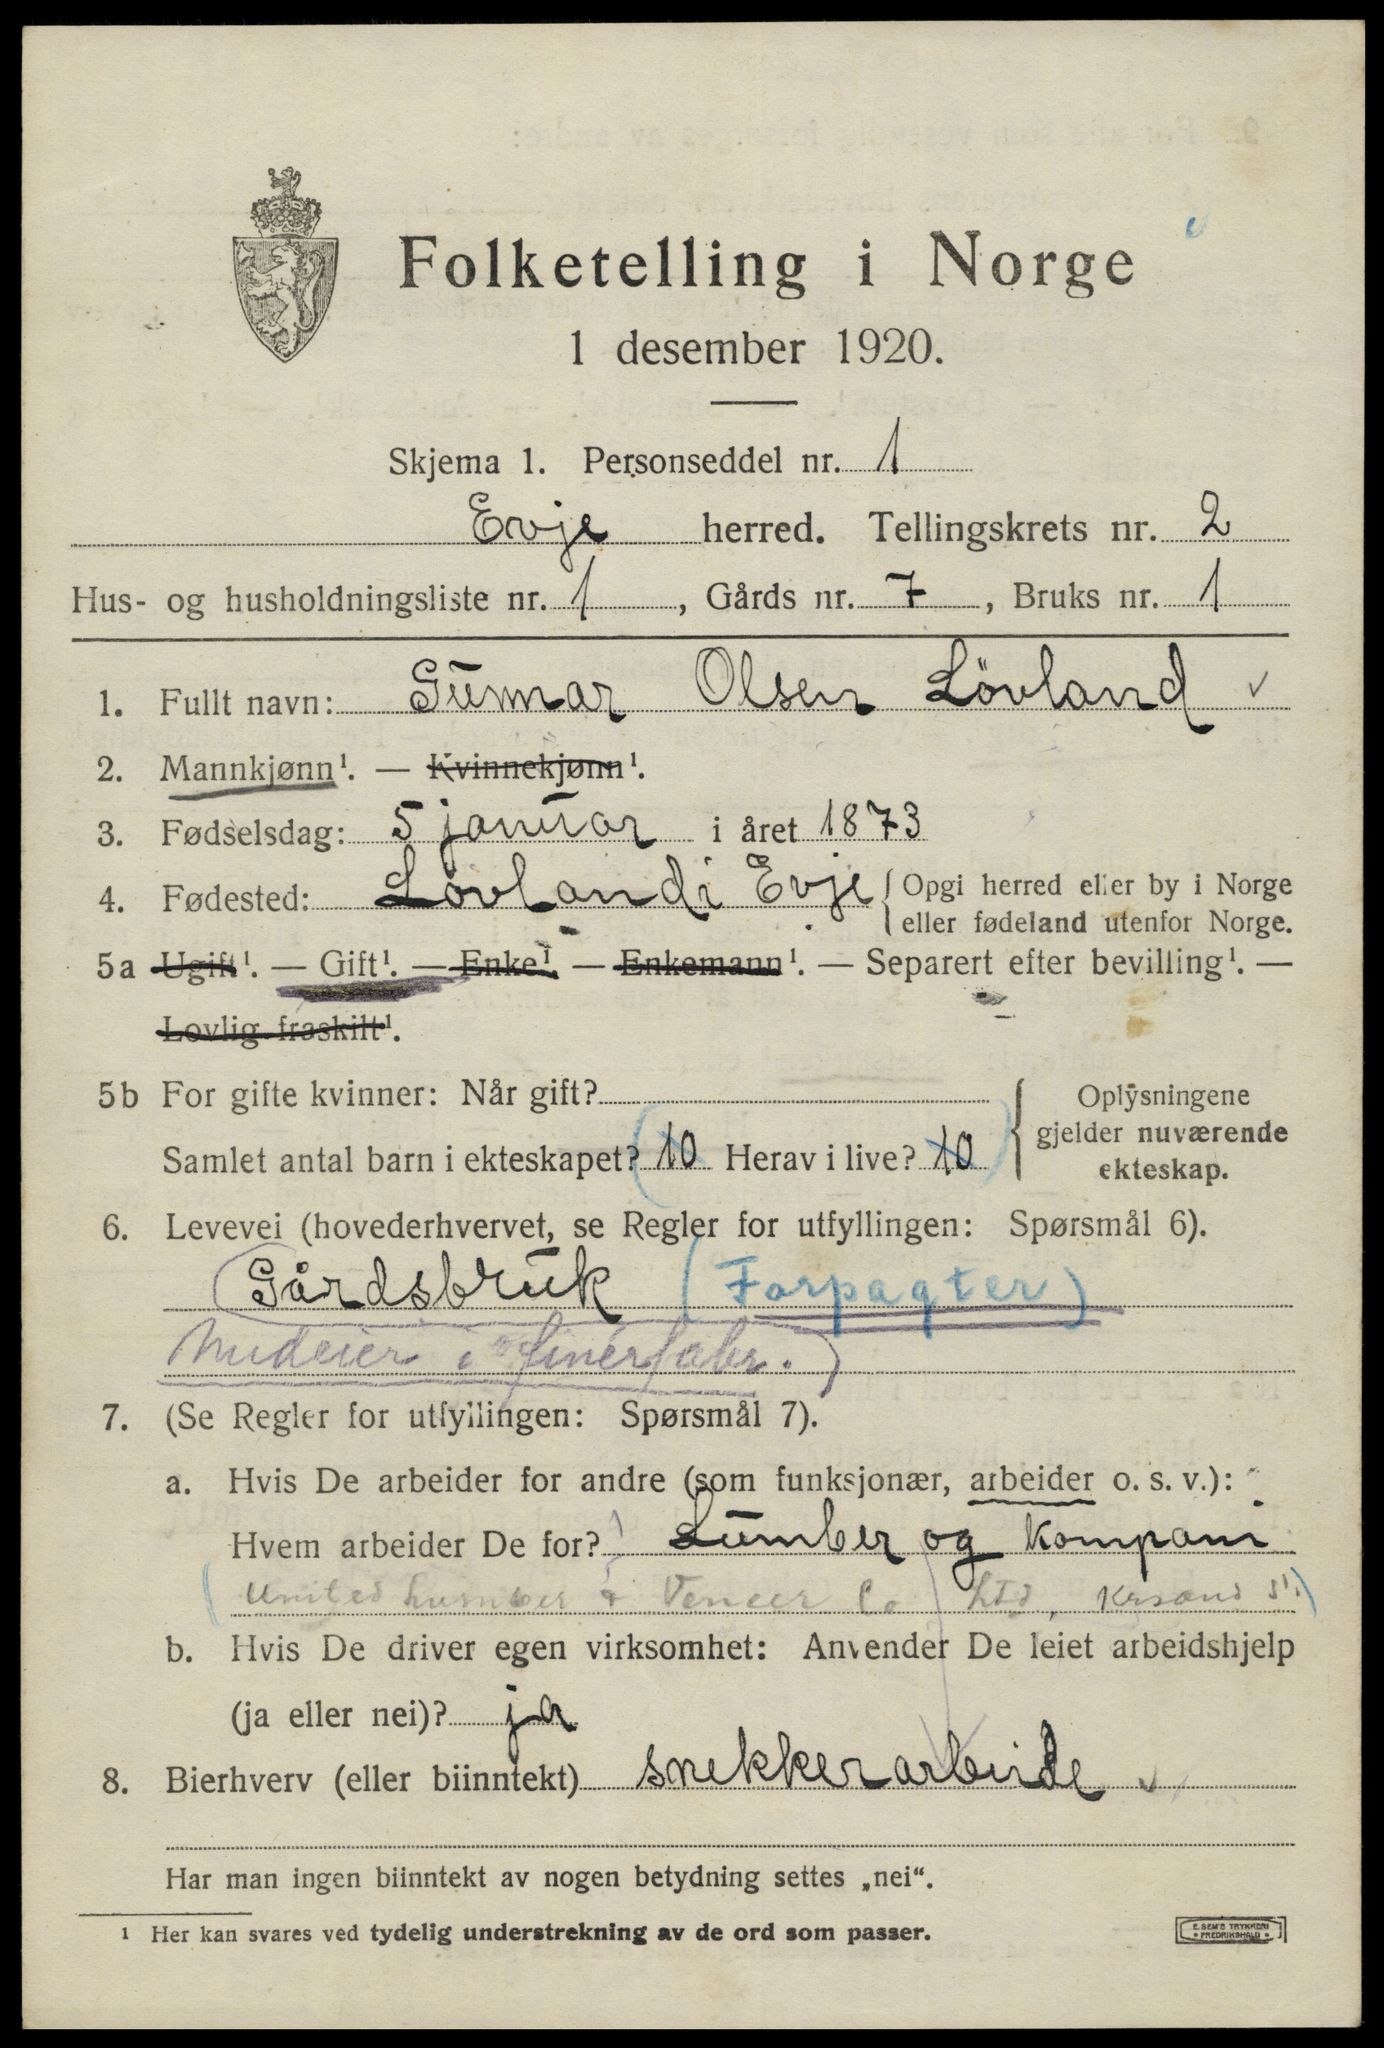 Folketelling i Norge
1 desember 1920.
Skjema 1. Personseddel nr. 1
Evje herred. Tellingskrets nr. 2
Hus- og husholdningsliste nr. 1, Gårds nr. 7, Bruks nr. 1
1. Fullt navn: Gunnar Olsen Lövland
2. Mannkjønn¹. — Kvinnekjønn¹.
3. Fødselsdag: 5 januar i året 1873
4. Fødested: Lövland i Evje { Opgi herred eller by i Norge
eller fødeland utenfor Norge.
5a Ugift¹. — Gift¹. — Enke¹ — Enkemann¹. — Separert efter bevilling¹. —
Lovlig fraskilt¹.
5b For gifte kvinner: Når gift?
Samlet antal barn i ekteskapet? 10 Herav i live? 10
Oplysningene
gjelder nuværende
ekteskap.
6. Levevei (hovederhvervet, se Regler for utfyllingen: Spørsmål 6).
Gårdsbruk (Forpagter)
Medeier i finérfabr.)
7. (Se Regler for utfyllingen: Spørsmål 7).
a. Hvis De arbeider for andre (som funksjonær, arbeider o. s. v.):
Hvem arbeider De for? Lumber og Kompani
(United Lumber & Veneer Co Ltd, Krsand S.)
b. Hvis De driver egen virksomhet: Anvender De leiet arbeidshjelp
(ja eller nei)? ja
8. Bierhverv (eller biinntekt) snekkerarbeide
Har man ingen biinntekt av nogen betydning settes „nei“.
¹ Her kan svares ved tydelig understrekning av de ord som passer.
E. SEM'S TRYKKERI
• FREDRIKSHALD •